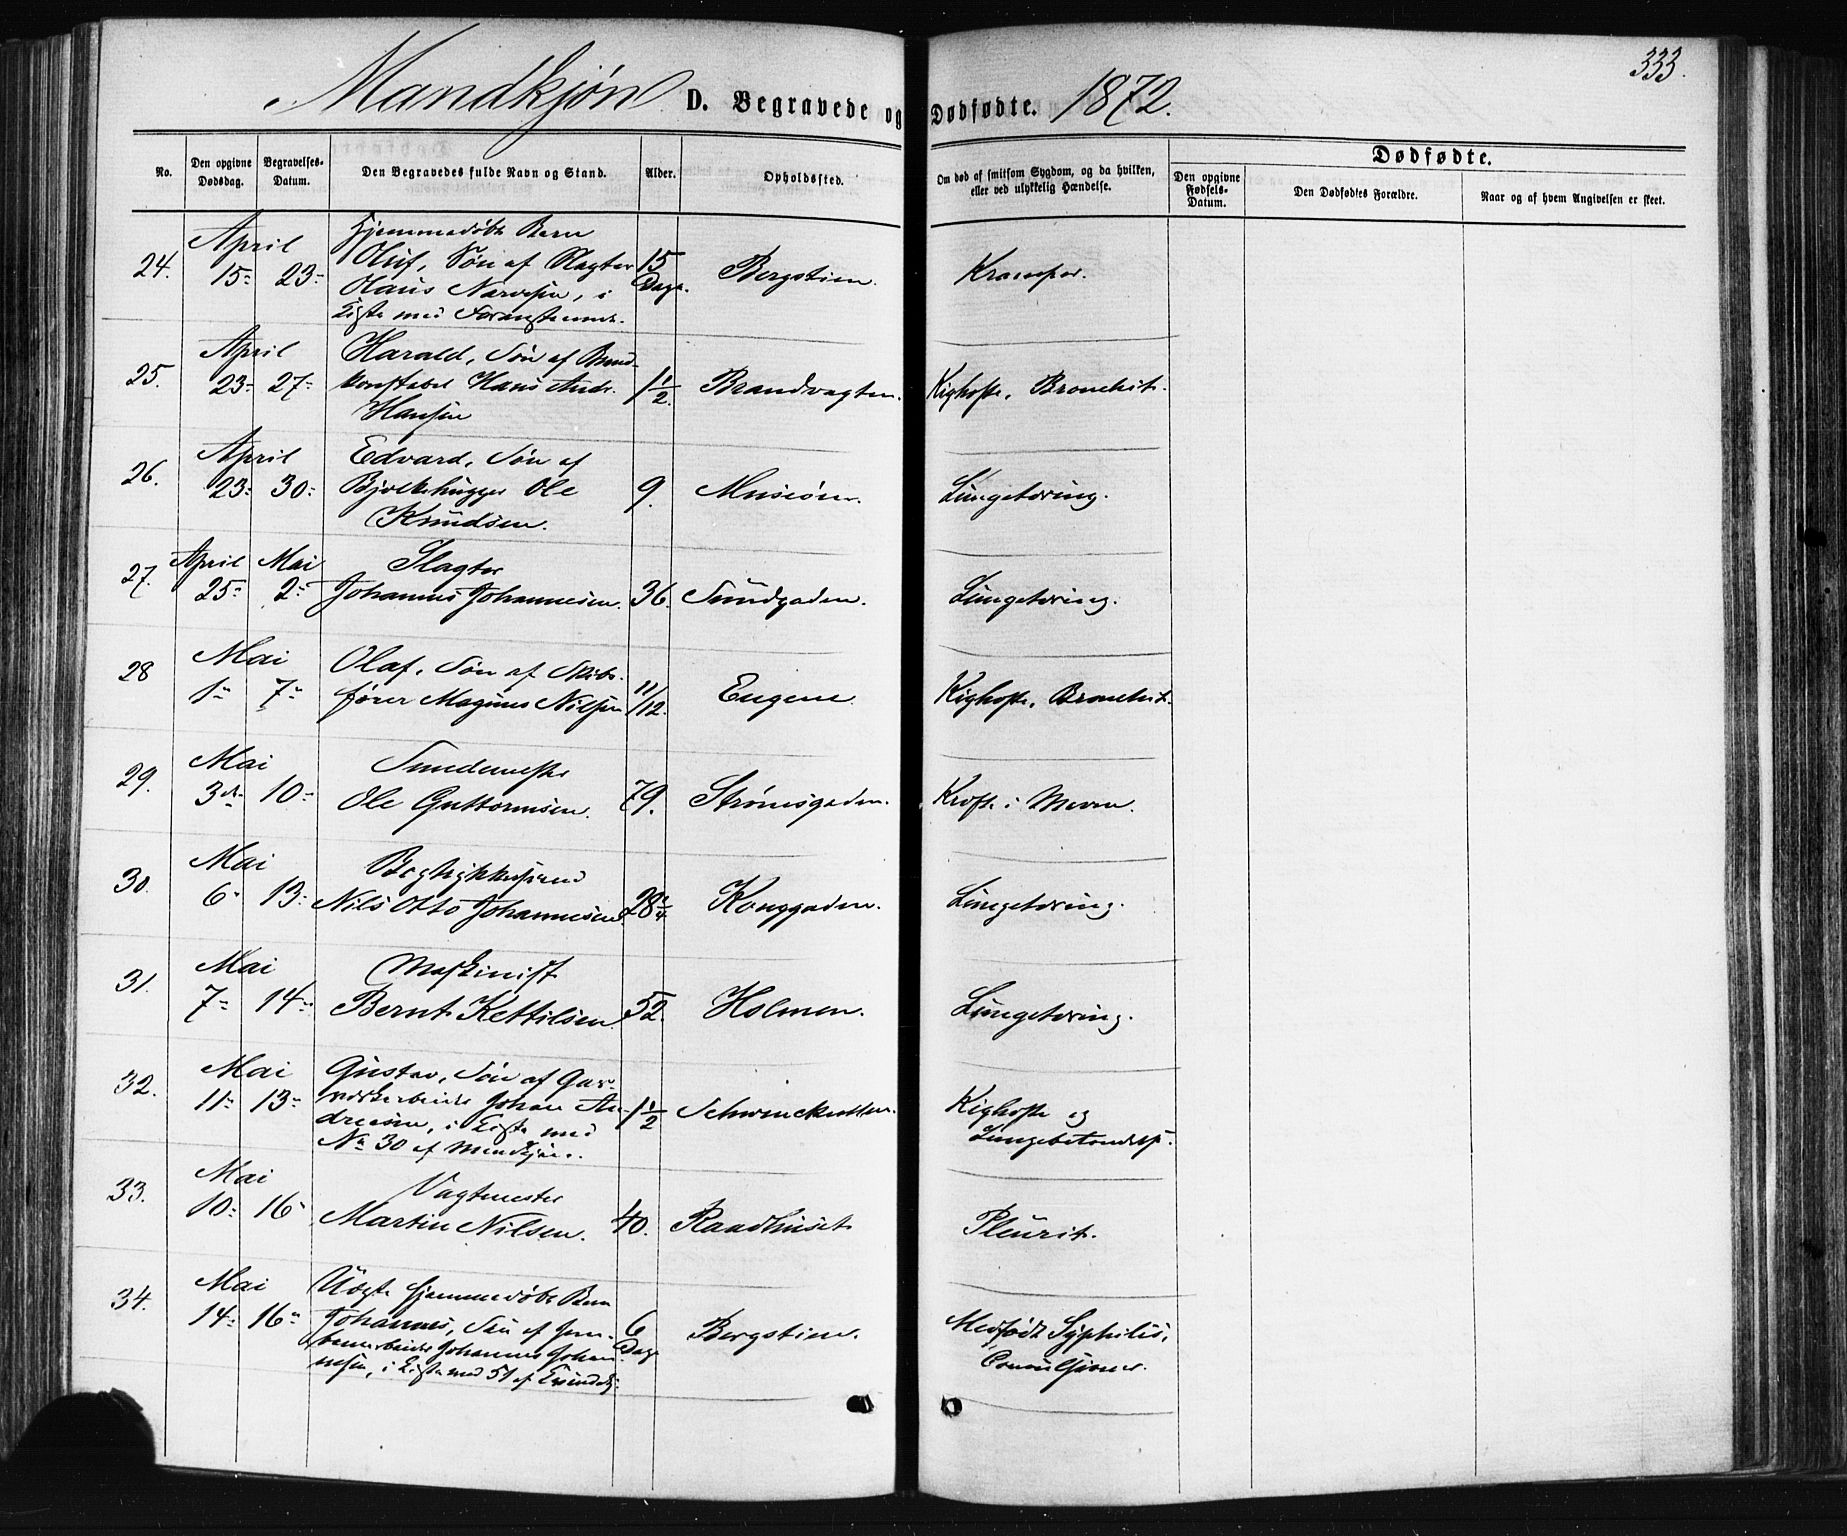 333.
Mandkjøn D. Begravede og Dødfødte. 1872.
No.
Den opgivne Dødsdag.
Begravelses-Datum.
Den Begravedes fulde Navn og Stand.
Alder.
Opholdssted.
Om død af smitsom Sygdom, og da hvilken,
eller ved ulykkelig Hændelse.
Dødfødte.
Den opgivne Fødsels-Datum.
Den Dødfødtes Forældre.
Naar og af hvem Angivelsen er skeet.
April Hjemmedøbt Barn
24. 15 23 Oluf, Søn af Slagter 15 Bergstien. Kramper.
Hans Narvesen, i Dage.
Kiste med
April Harald, Søn af Brand-
25. 23 27 konstabel Hans Andr. 1 1/2 Brandvagten. Kighoste, Bronchit.
Hansen
April Edvard, Søn af
26. 23 30 Bjelkehugger Ole 9. Museøen. Lungetæring.
Knudsen.
April Mai Slagter
27. 25 2 Johannes Johannesen. 36. Sundgaden. Lungetæring.
Mai Olaf, Søn af Skibs-
28 1 7 fører Magnus Nilsen 11/12. Eugene. Kighoste, Bronchit.
Mai
29. 3die 10 Ole Guttormsen. 79. Strømsgaden. Kræft i Maven.
Mai
30. 6 13 Nils Otto Johannesen 28 Konggaden. Lungetæring.
Mai Maskinist
31. 7 14 Bernt Kettilsen 52. Holmen. Lungetæring.
Mai Gustav, Søn af Gas-
32. 11 13 værksarbeider Johan An- 1 1/2 Schwenckestien. Kighoste og
dreasen, i Kiste med
No 30 af Mandkjøn.
Mai Vagtmester
33. 10 16 Martin Nilsen. 40. Raadhuset. Pleurit.
Mai Uægte hjemmedøbt Barn
34. 14 16 Johannes, Søn af Jern- 6 Bergstien. Medfødt Syphilis,
banearbeider Johannes Johan- Dage Convulsioner.
nesen, i Kiste med 51 af Kvindekj.